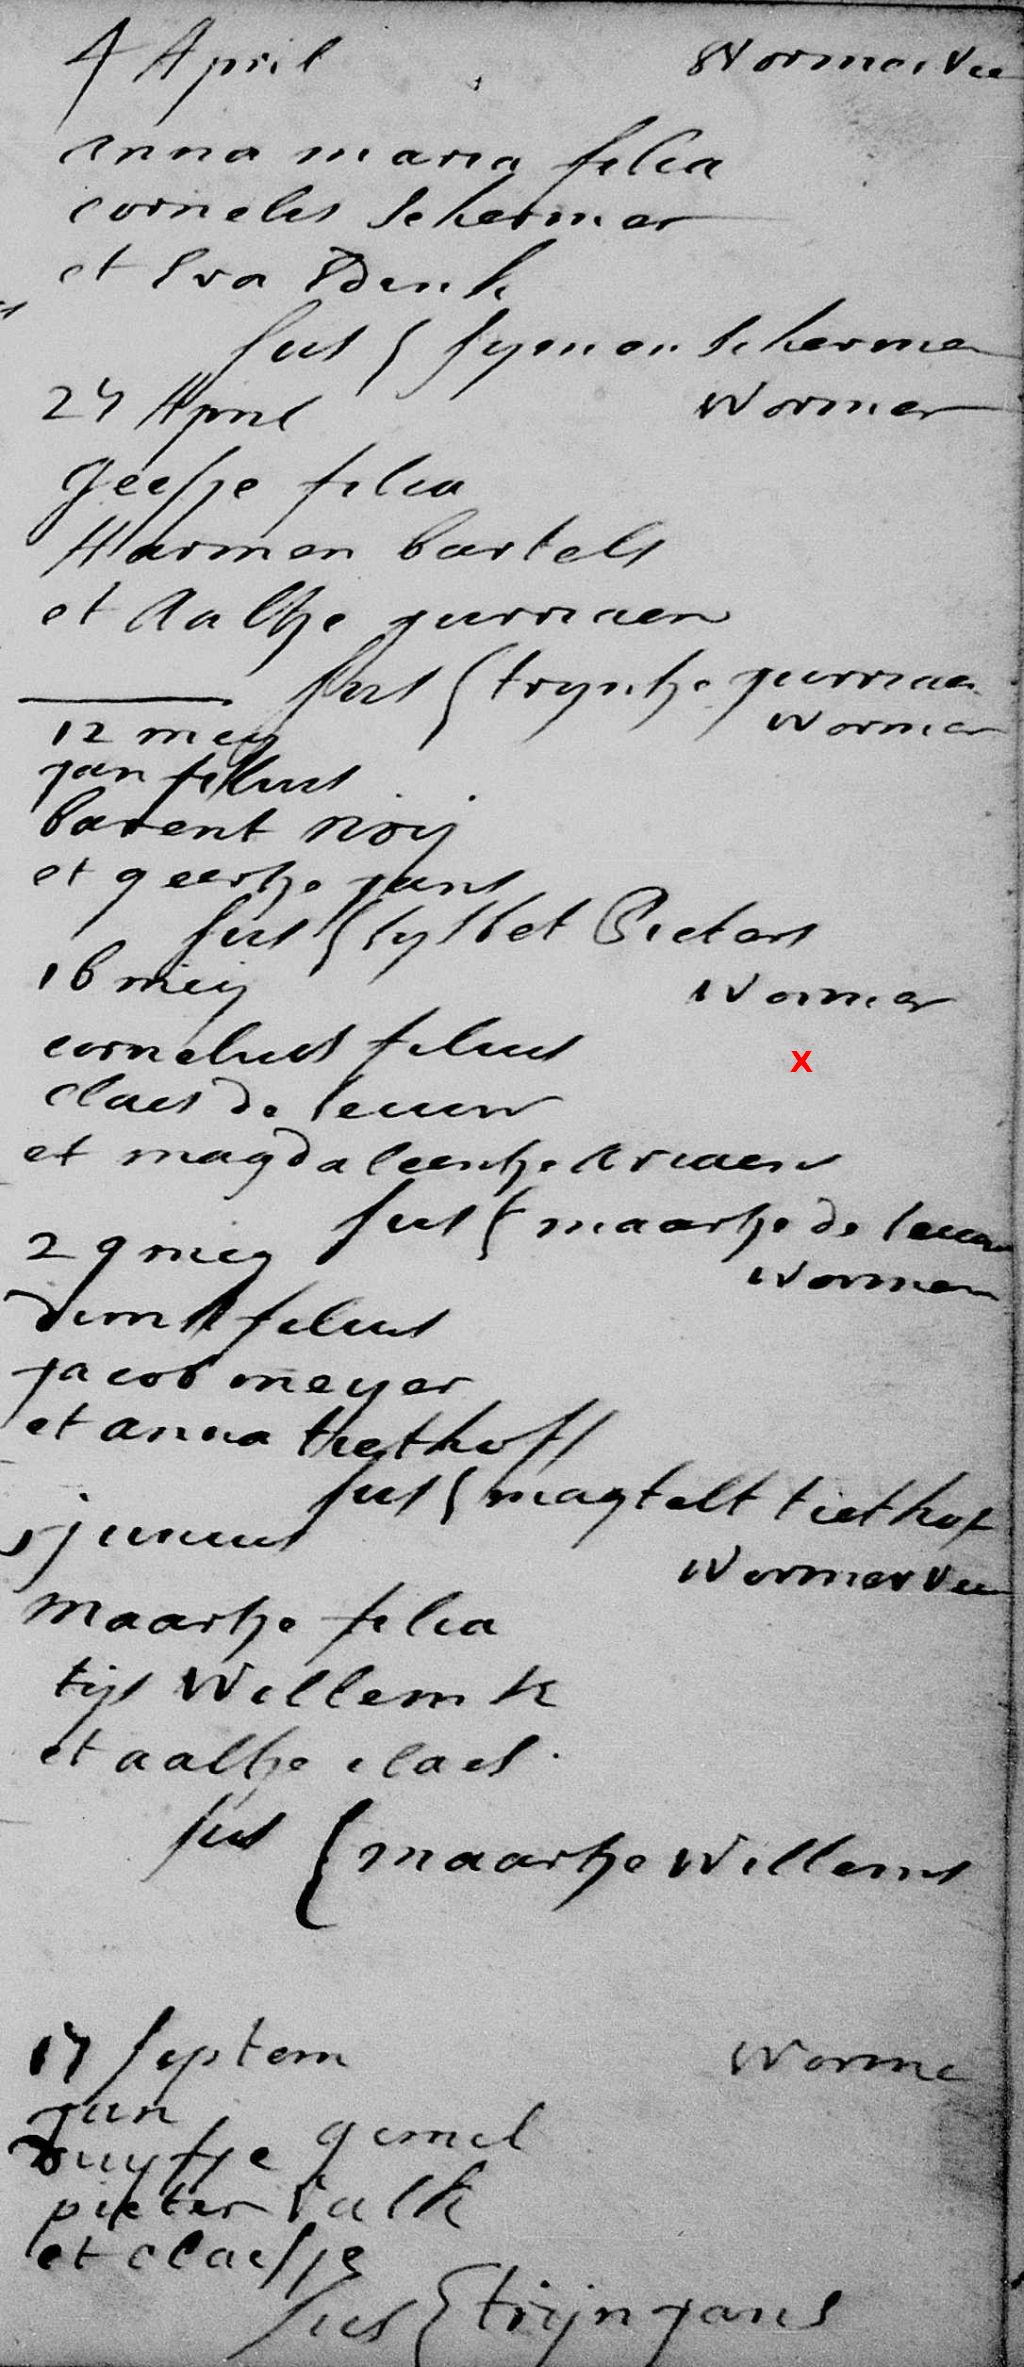 4 April Wormer Vee
Anna maria filia
cornelis Schermer
et Eva Denk
sus { symon Scherme
27 April Wormer
Geesje filia
Harmen bartels
et Aaltje jurriaen
sus { tryntje jurriae
12 mey Wormer
jan filius
barent noij
et geertje jans
sus { sybbet Pieters
16 mey Wormer
cornelius filius X
claes de leeuw
et magdaleentje Ariaens
sus { maartje de leeuw
29 mey Wormer
filius
jacob meyer
et anna tiethoff
sus { magtelt tiethof
5 junius Wormer Vee
Maartje filia
tijs Willem
et aaltje claes
sus { maartje Willems
17 septem Worme
jan
duyfje gemel
pieter Valk
et claesje
sus { trijn jans